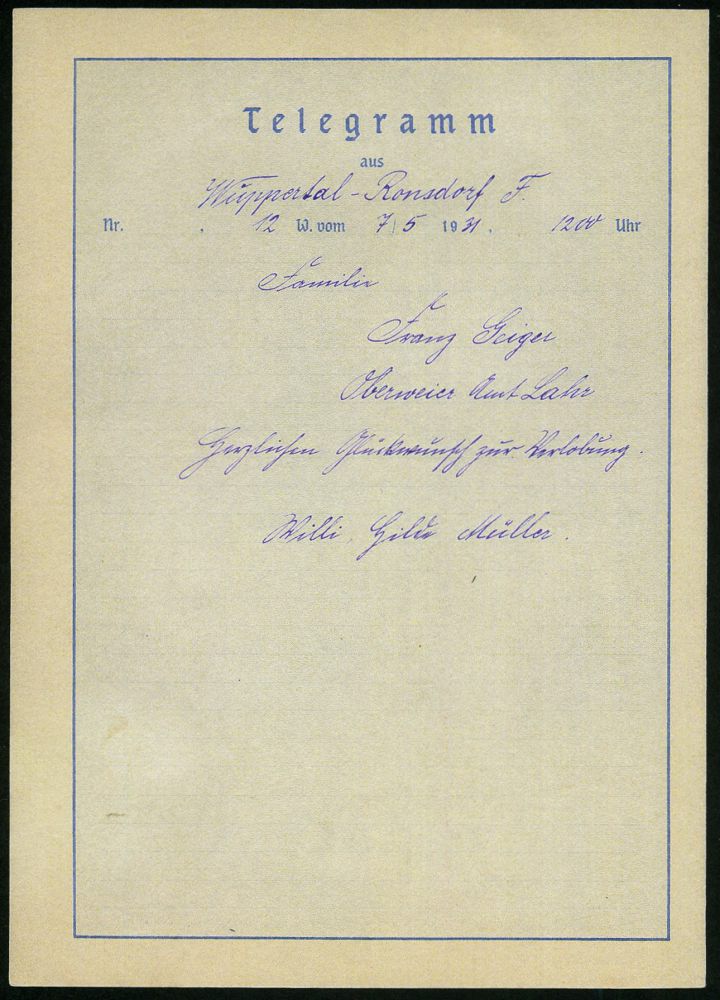 Telegramm
aus
Wuppertal-Ronsdorf F.
Nr. . 12 W. vom 7/5 1931. 1200 Uhr
Familie
Franz Geiger
Oberweier Amt Lahr
Herzlichen Glückwunsch zur Verlobung.
Willi, Hilde Müller.